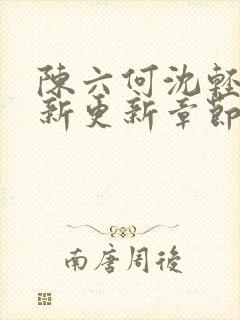 陳六何沈輕
新更新章節
南唐周後